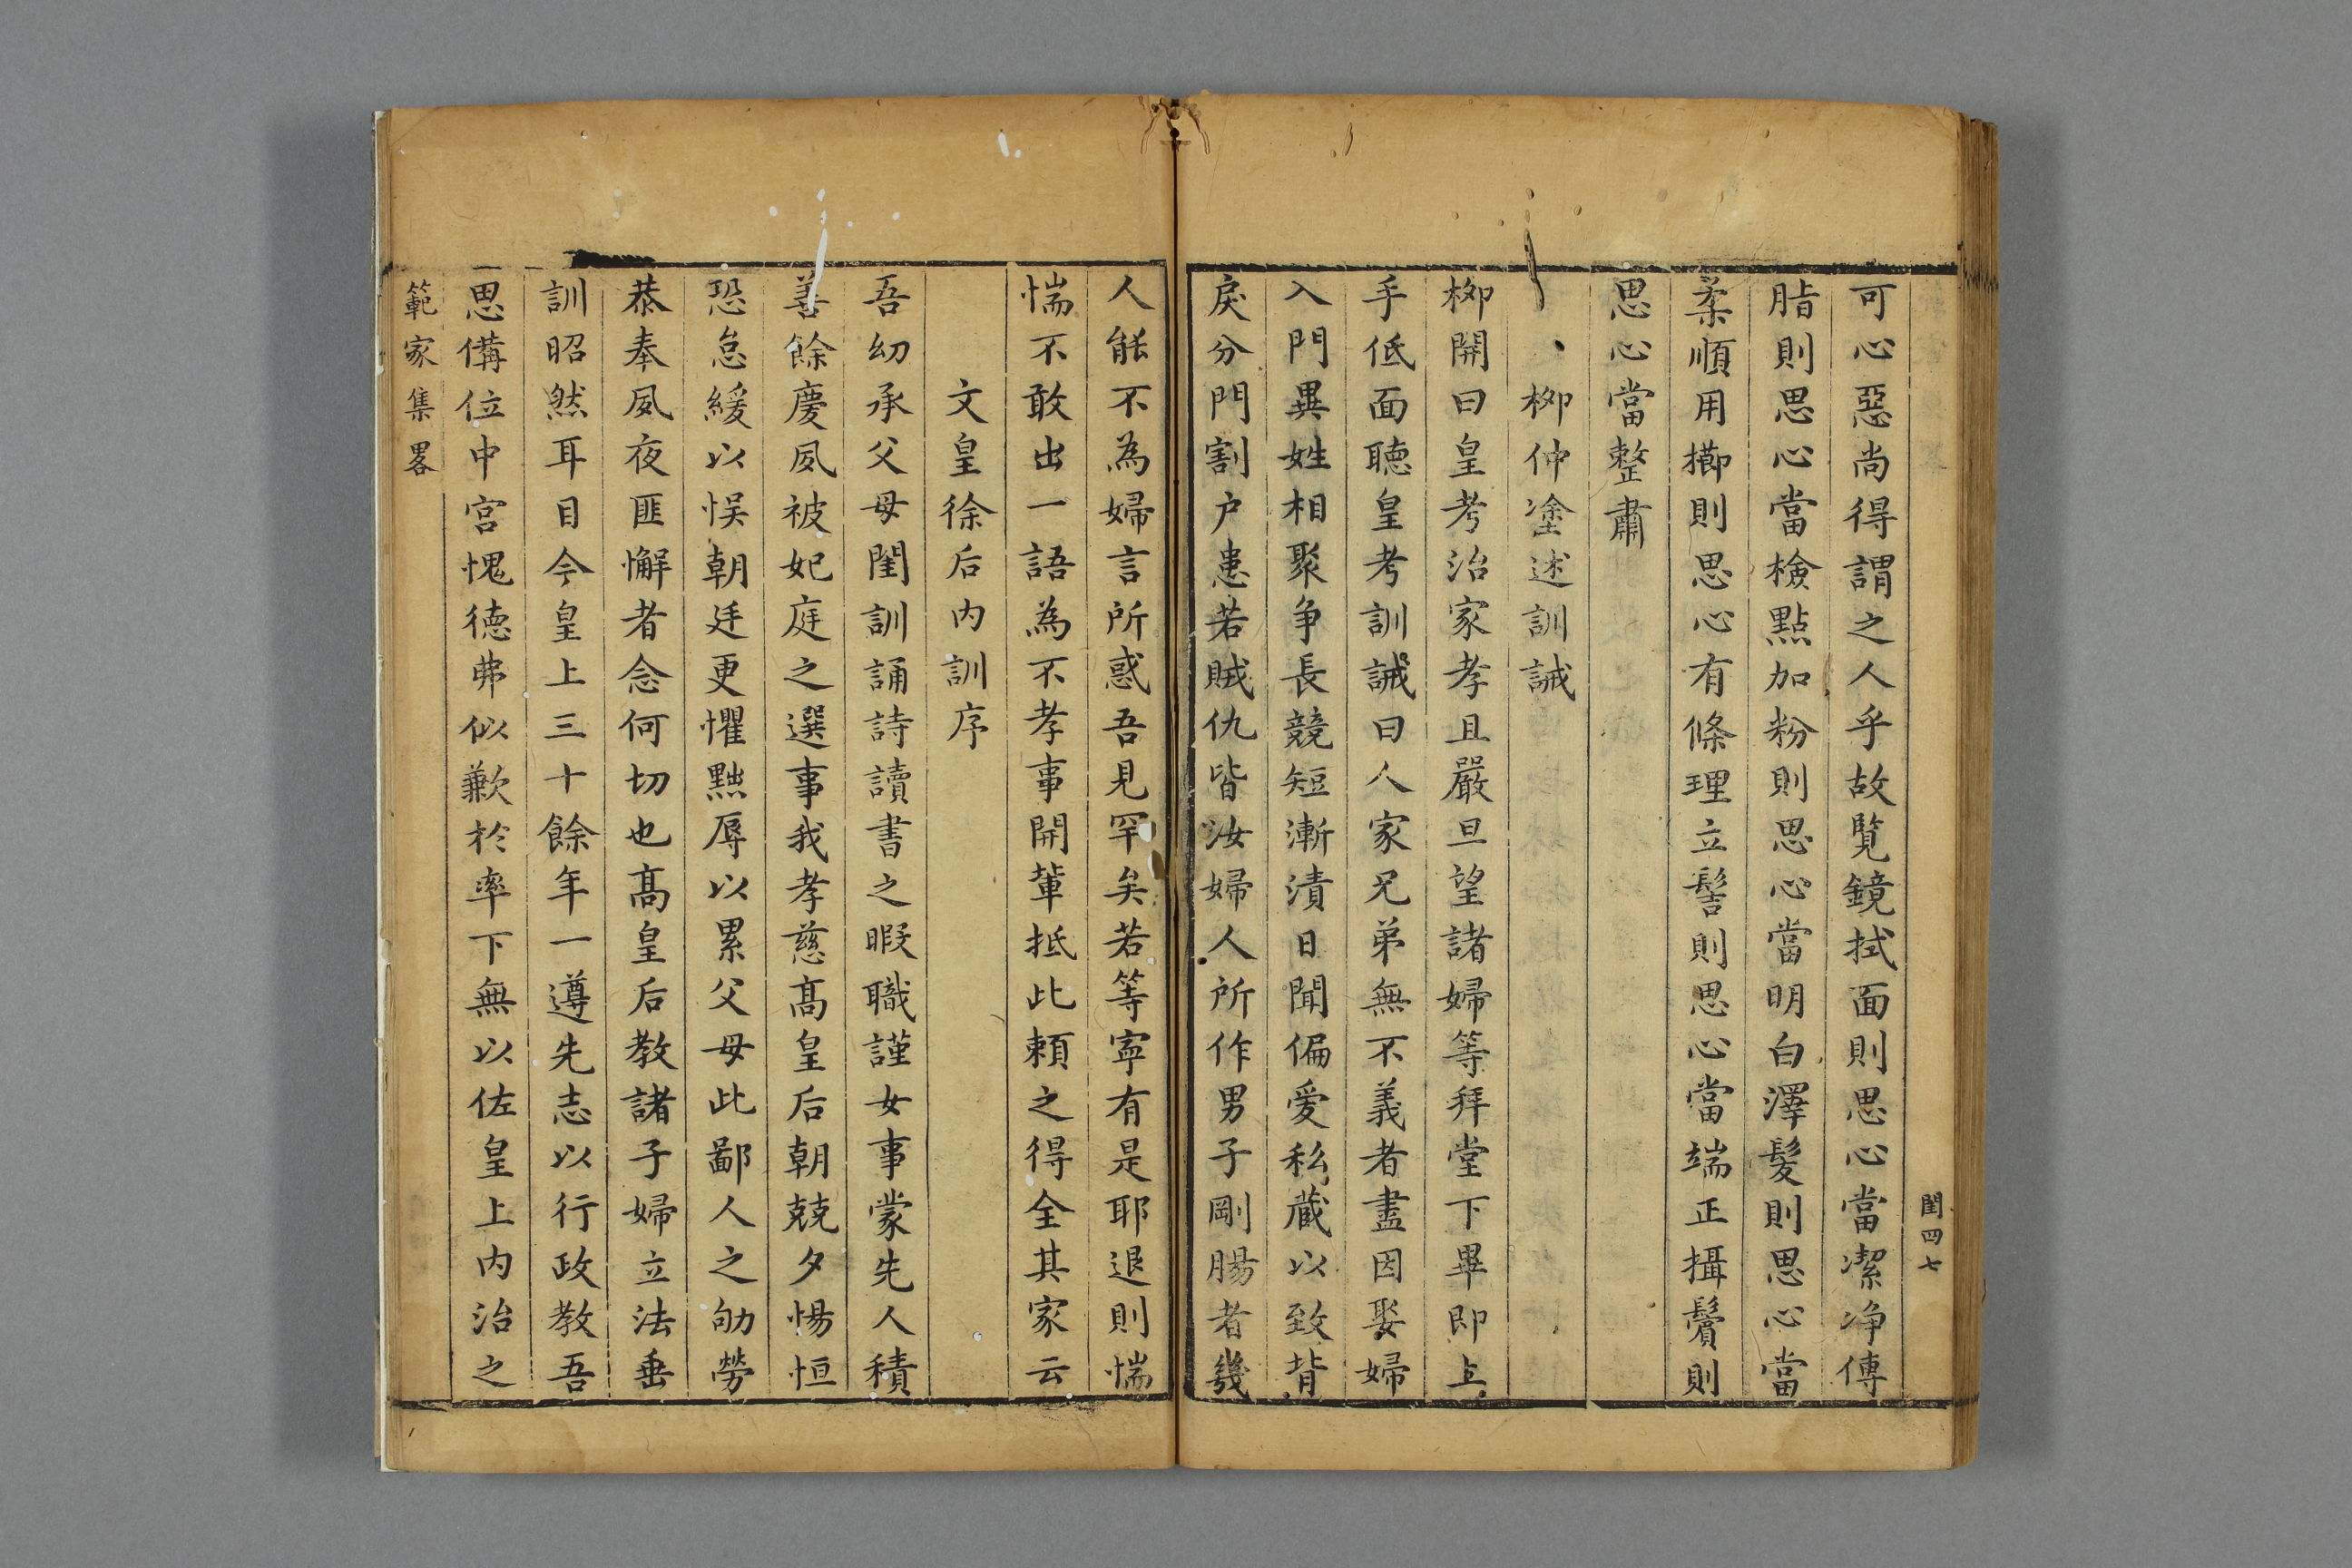 閨四七
可心惡尚得謂之人乎故覧鏡拭面則思心當潔净傅
脂則思心當檢點加粉則思心當明白澤髮則思心當
柔順用櫛則思心有條理立髻則思心當端正攝鬢則
思心當整肅
柳仲塗述訓誡
柳開曰皇考治家孝且嚴旦望諸婦等拜堂下畢即上
手低面聽皇考訓誡曰人家兄弟無不義者盡因娶婦
入門異姓相聚争長競短漸漬日聞偏愛私藏以致背
戾分門割户患若賊仇皆汝婦人所作男子剛腸者幾
人能不為婦言所惑吾見罕矣若等寧有是耶退則惴
惴不敢出一語為不孝事開輩抵此頼之得全其家云
文皇徐后内訓序
吾幼承父母閨訓誦詩讀書之暇職謹女事蒙先人積
善餘慶夙被妃庭之選事我孝慈髙皇后朝兢夕惕恒
恐怠緩以悞朝廷更懼黜辱以累父母此鄙人之劬勞
恭奉夙夜匪懈者念何切也髙皇后教諸子婦立法垂
訓昭然耳目今皇上三十餘年一遵先志以行政教吾
思備位中宫愧徳弗似歉於率下無以佐皇上内治之
範家集畧